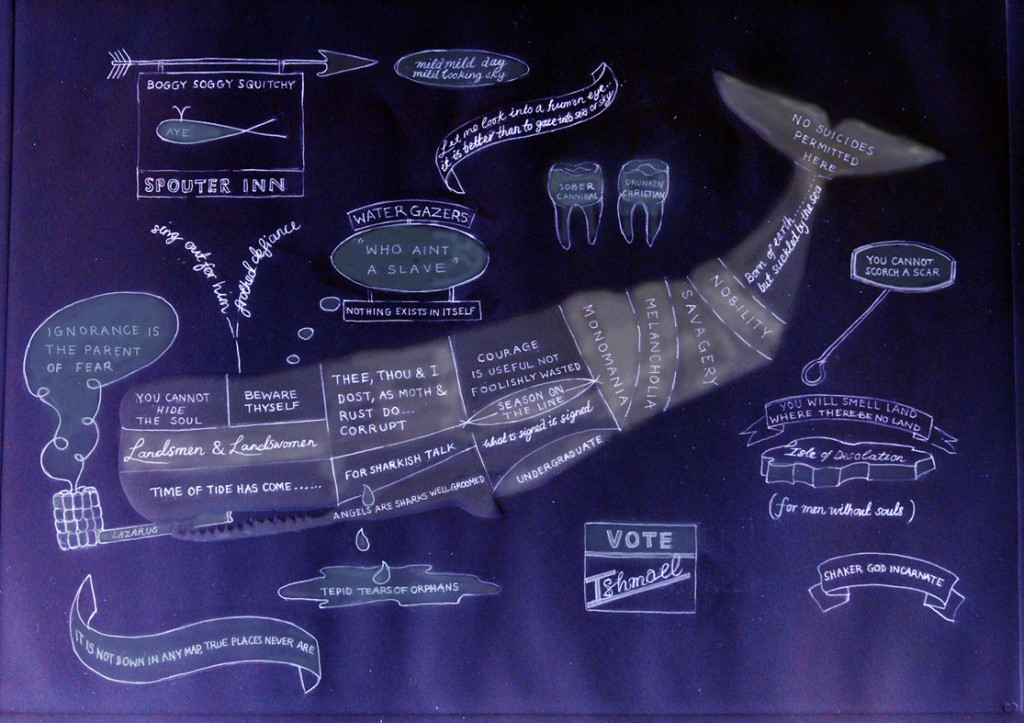 BOGGY SOGGY SQUITCHY
AYE
SPOUTER INN
mild mild day
mild looking sky
Let me look into a human eye..
it is better than to gaze into sea or sky
SOBER
CANNIBAL
DRUNKEN
CHRISTIAN
NO SUICIDES
PERMITTED
HERE
Born of earth
but suckled by the sea
WATER GAZERS
"WHO AINT
A SLAVE"
NOTHING EXISTS IN ITSELF
sing out for him
frothed defiance
YOU CANNOT
SCORCH A SCAR
IGNORANCE IS
THE PARENT
OF FEAR
YOU CANNOT
HIDE
THE SOUL
BEWARE
THYSELF
THEE, THOU & I
DOST, AS MOTH &
RUST DO...
CORRUPT
COURAGE
IS USEFUL NOT
FOOLISHLY WASTED
SEASON ON
THE LINE
what is signed is signed
MONOMANIA
MELANCHOLIA
SAVAGERY
NOBILITY
Landsmen & Landswomen
FOR SHARKISH TALK
UNDERGRADUATE
TIME OF TIDE HAS COME......
ANGELS ARE SHARKS WELL GROOMED
LAZARUS
YOU WILL SMELL LAND
WHERE THERE BE NO LAND
Isle of Desolation
(for men without souls)
VOTE
Ishmael
SHAKER GOD INCARNATE
TEPID TEARS OF ORPHANS
IT IS NOT DOWN IN ANY MAP, TRUE PLACES NEVER ARE